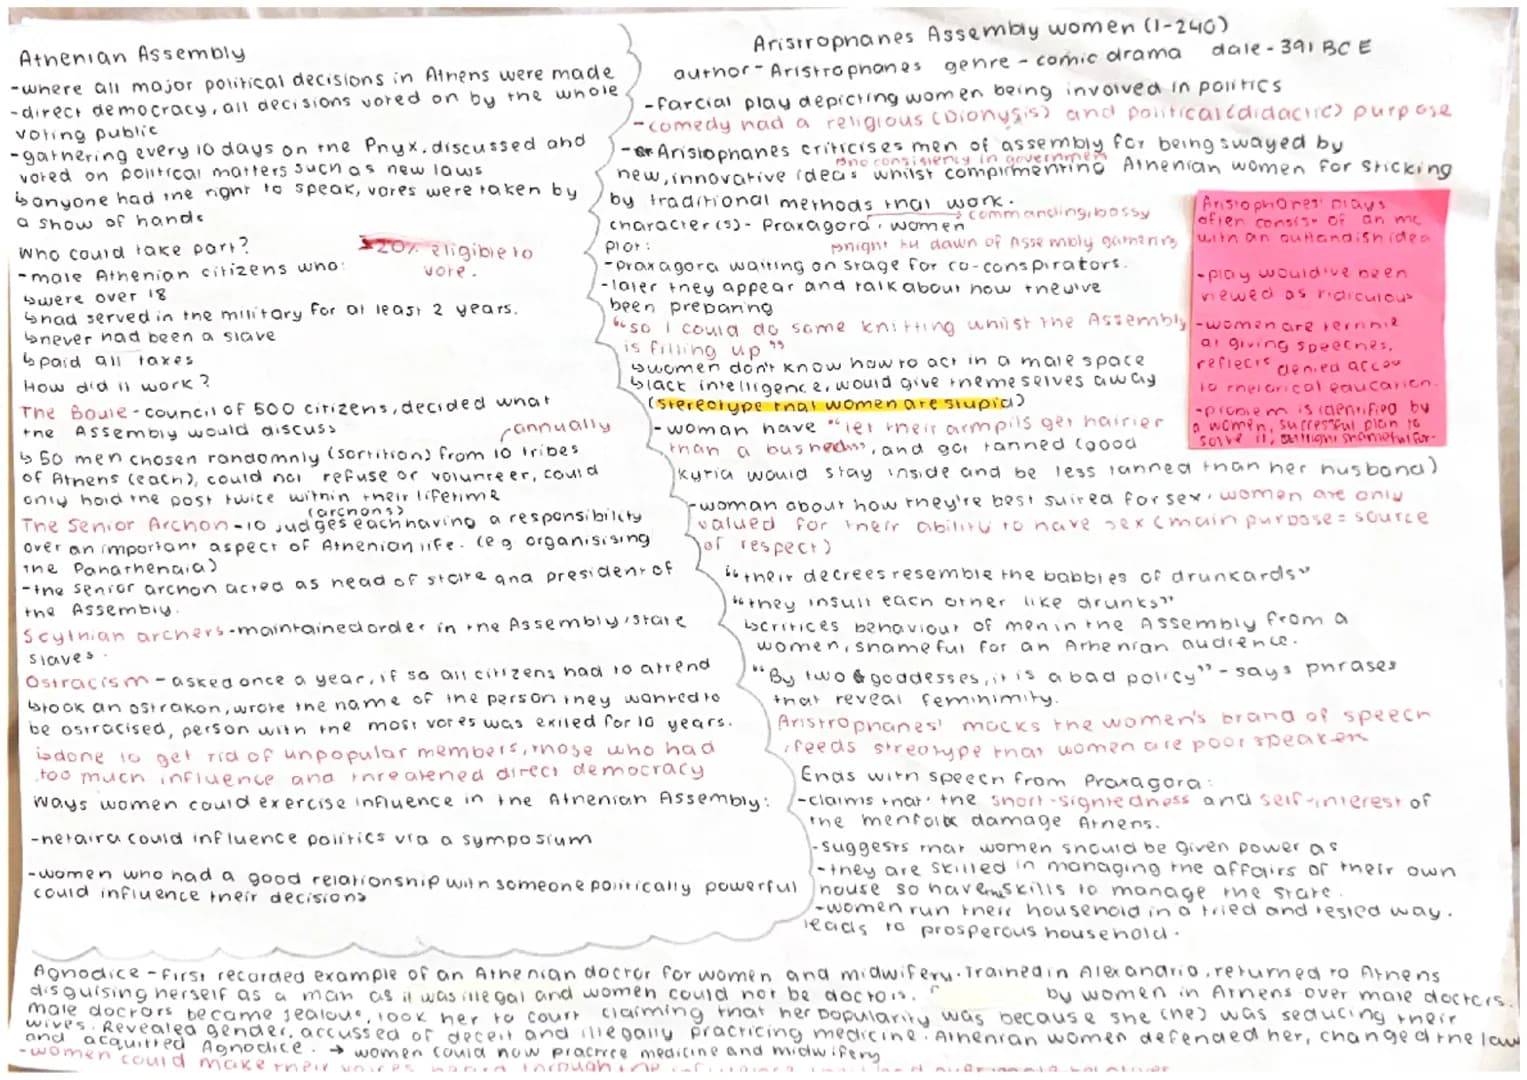 Athenian Assembly
-where all major political decisions in Athens were made
-direct democracy, all decisions voted on by the whole
voting public
-gathering every 10 days on the Pnyx, discussed and
voted on political matters such as new laws
↳anyone had the right to speak, votes were taken by
a show of hands
Who could take part?
→20% eligible to
vote.
-male Athenian citizens who:
↳were over 18
↳had served in the military for at least 2 years.
↳never had been a slave
↳paid all taxes
How did it work?
The Boule - council of 500 citizens, decided what
the Assembly would discuss
annually
↳50 men chosen randomly (sortition) from 10 tribes
of Athens (each), could not refuse or volunteer, could
only hold the post twice within their lifetime
(archons)
The Senior Archon - 10 judges each having a responsibility
over an important aspect of Athenian life. (eg organisising
the Panathenaia)
-the senior archon acted as head of state and president of
the Assembly.
Scythian archers - maintained order in the Assembly, state
slaves.
Ostracism - asked once a year, if so all citizens had to attend
↳took an ostrakon, wrote the name of the person they wanted to
be ostracised, person with the most votes was exiled for 10 years.
↳done to get rid of unpopular members, those who had
too much influence and threatened direct democracy
Ways women could exercise influence in the Athenian Assembly:
-hetaira could influence politics via a symposium
-women who had a good relationship with someone politically powerful
could influence their decisions
Aristrophanes Assembly women (1-240)
author - Aristrophanes genre - comic drama date - 391 BCE
-farcial play depicting women being involved in politics
-comedy had a religious (Dionysis) and political (didactic) purpose
-Aristophanes criticises men of assembly for being swayed by
no consistency in government
new, innovative ideas whilst complimenting Athenian women for sticking
by traditional methods that work.
→commanding, bossy
character(s) - Praxagora, women
plot:
night to dawn of Assembly gathering
-praxagora waiting on stage for co-conspirators.
-later they appear and talk about how they've
been preparing
"so I could do some knitting whilst the Assembly
is filling up"
↳women don't know how to act in a male space
↳lack intelligence, would give themeselves away
(stereotype that women are stupid)
-woman have "let their armpits get hairier
than a bush", and got tanned (good
kyria would stay inside and be less tanned than her husband)
-woman about how they're best suited for sex, women are only
valued for their ability to have sex (main purpose = source
of respect)
"their decrees resemble the babbles of drunkards"
"they insult each other like drunks"
↳critices behaviour of men in the Assembly from a
women, shameful for an Athenian audience.
"By two goddesses, it is a bad policy" - says phrases
that reveal feminimity.
Aristrophanes' mocks the women's brand of speech
, feeds streotype that women are poor speaker
Ends with speech from Praxagora:
-claims that the short-sightedness and self-interest of
the menfolk damage Athens.
-suggests that women should be given power as
-they are skilled in managing the affairs of their own
house so have the skills to manage the state.
-women run their household in a tried and tested way.
leads to prosperous household.
Aristophanes' plays
often consist of an mc
with an outlandish idea
-play would've been
viewed as ridiculous
-women are terrible
at giving speeches,
reflects denied access
to rhetorical education.
-problem is identified by
a women, successful plan to
solve it,
Agnodice - first recorded example of an Athenian doctor for women and midwifery. Trained in Alexandria, returned to Athens
disguising herself as a man as it was illegal and women could not be doctors. by women in Athens over male doctors.
male doctors became jealous, took her to court claiming that her popularity was because she (he) was seducing their
wives. Revealed gender, accussed of deceit and illegally practicing medicine. Athenian women defended her, changed the law
and acquitted Agnodice. → women could now practice medicine and midwifery
-women could make their voices heard through the